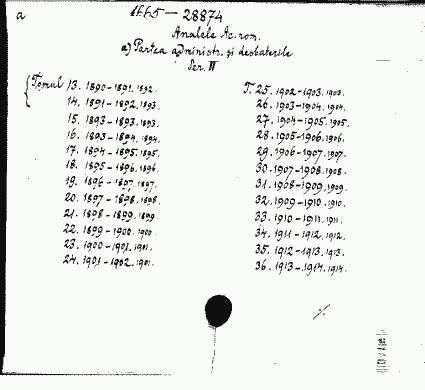 a
1665 – 28874
Analele Ac. rom.
a) Partea administr. și desbaterile
Ser. II
Tomul 13. 1890–1891. 1892.
14. 1891–1892. 1893.
15. 1893–1893. 1893.
16. 1893–1894. 1894.
17. 1894–1895. 1895.
18. 1895–1896. 1896.
19. 1896–1897. 1897.
20. 1897–1898. 1898.
21. 1898–1899. 1899.
22. 1899–1900. 1900.
23. 1900–1901. 1901.
24. 1901–1902. 1901.
T. 25. 1902–1903. 1903.
26. 1903–1904. 1904.
27. 1904–1905. 1905.
28. 1905–1906. 1906.
29. 1906–1907. 1907.
30. 1907–1908. 1908.
31. 1908–1909. 1909.
32. 1909–1910. 1910.
33. 1910–1911. 1911.
34. 1911–1912. 1912.
35. 1912–1913. 1913.
36. 1913–1914. 1914.
./.